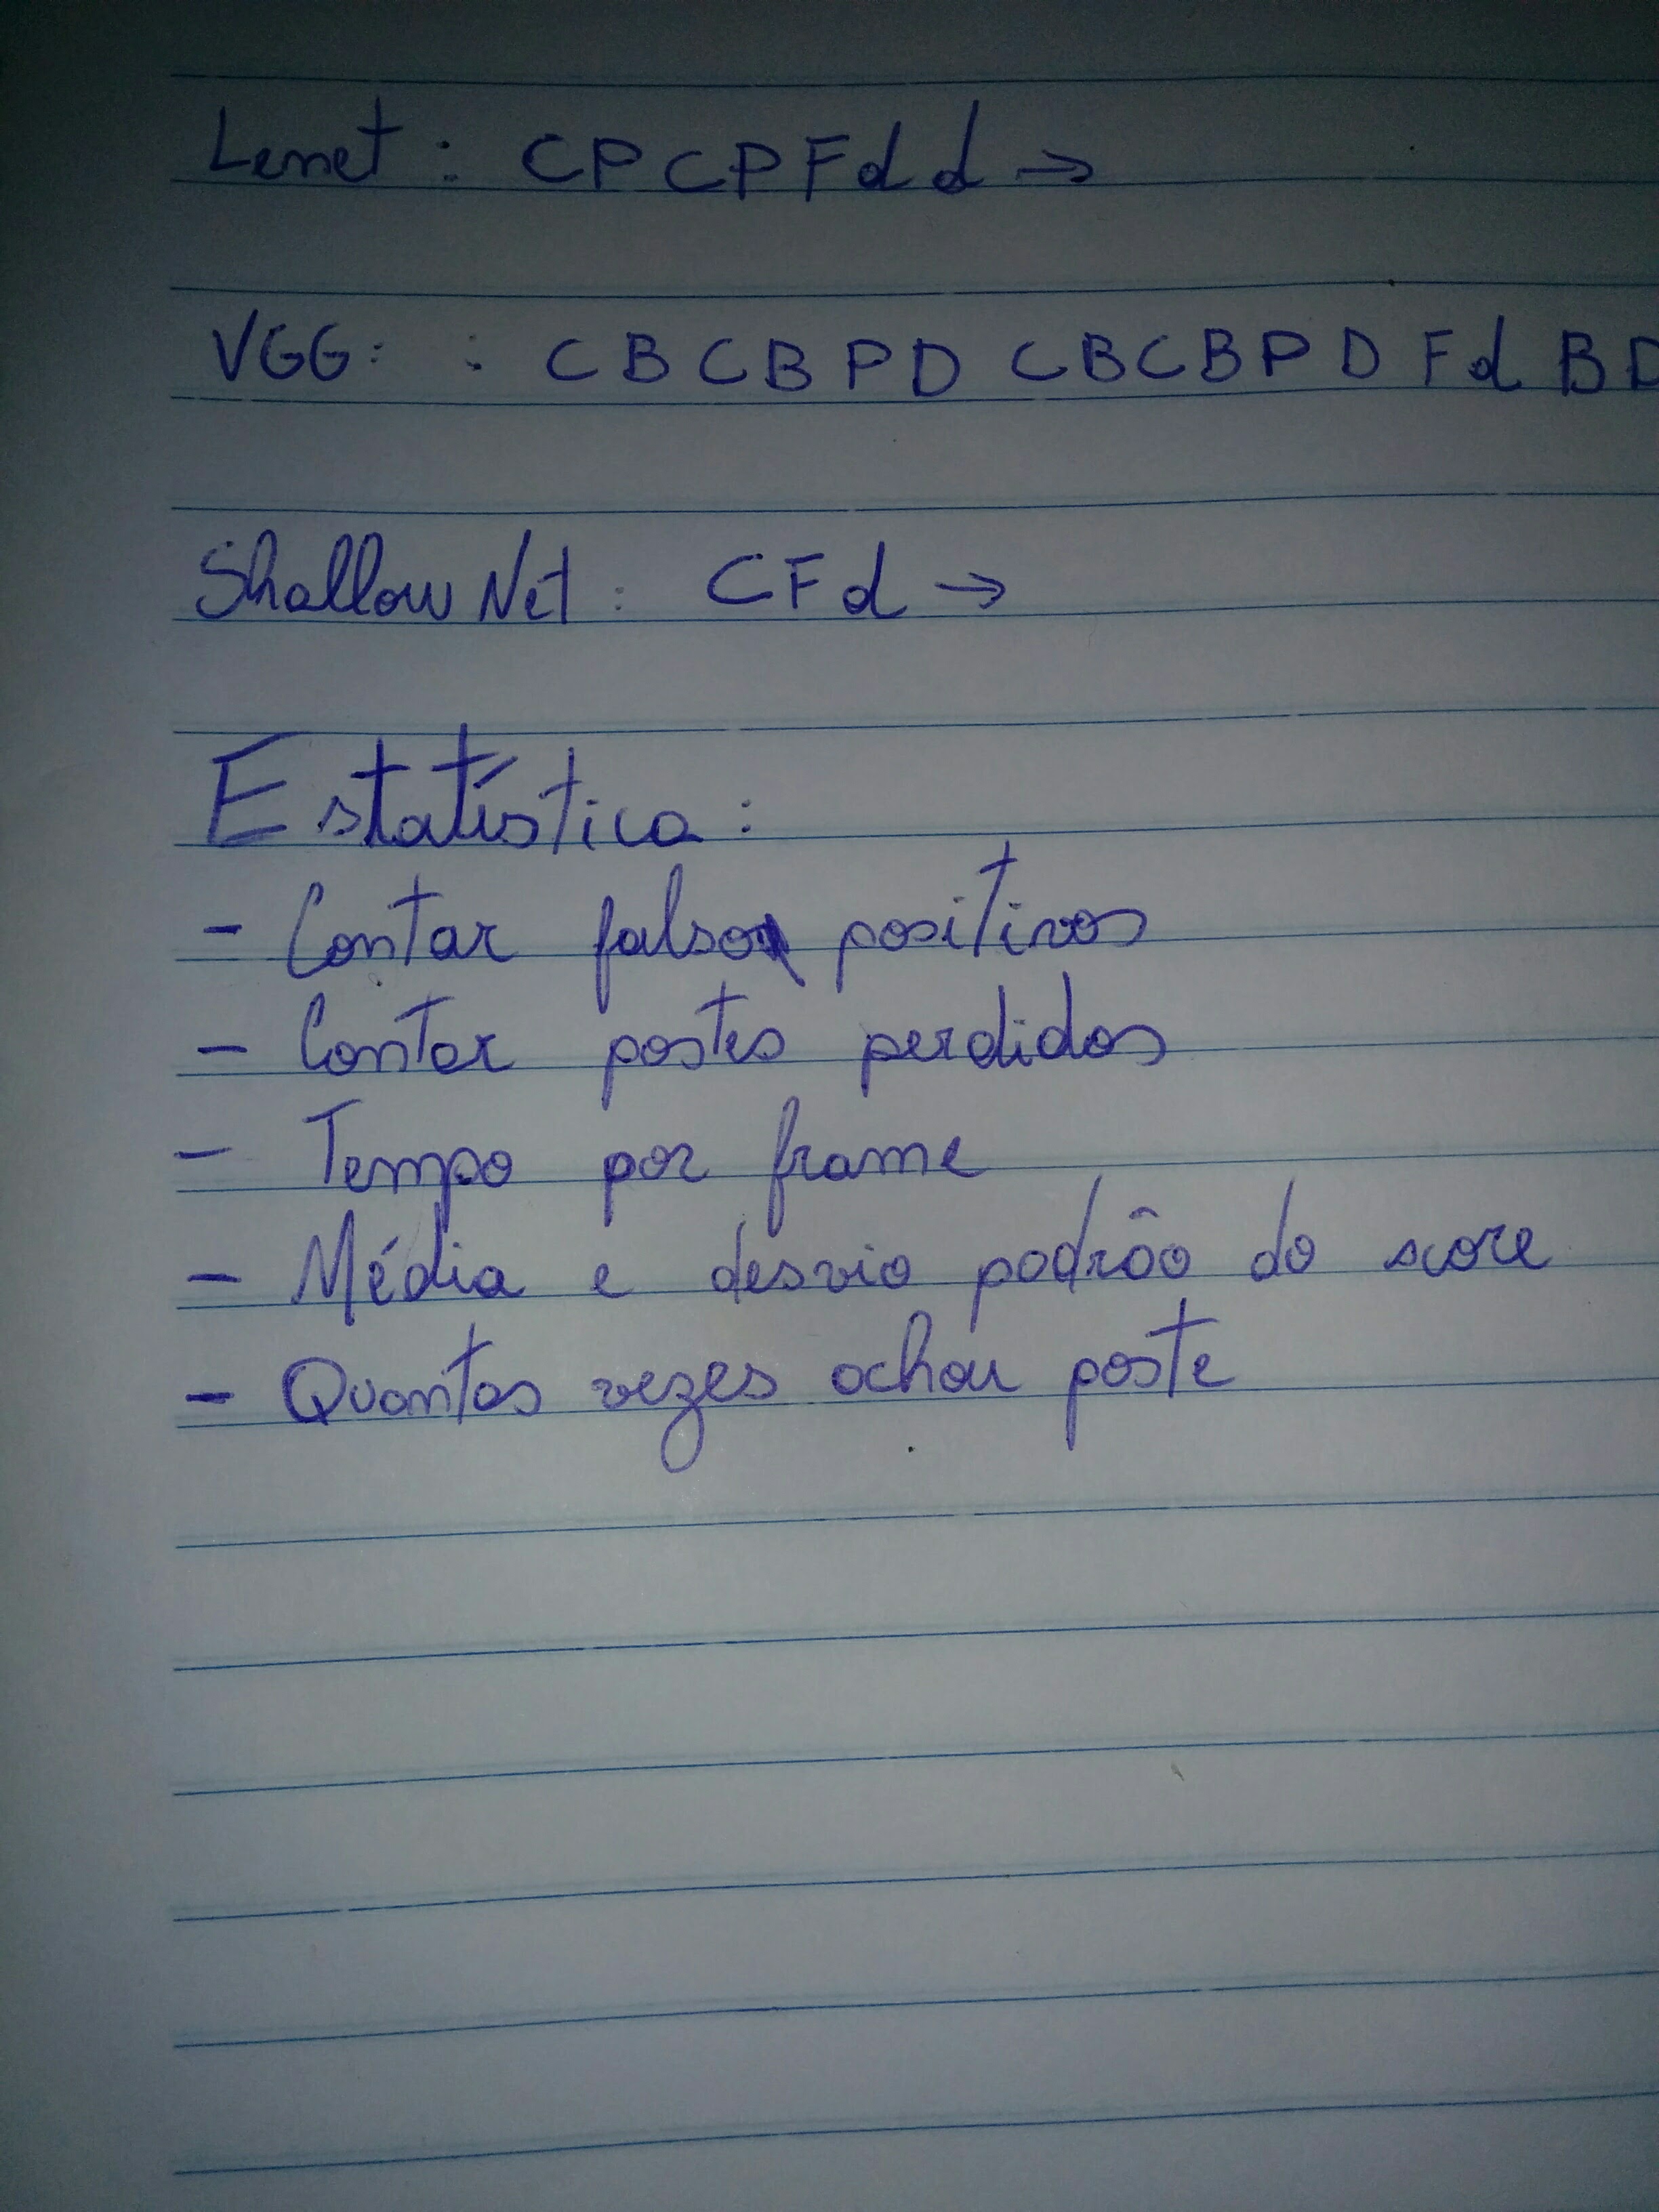 Lenet : CPCPFdd →
VGG: : CBCBPD CBCBPD Fd BD
Shallow Net : CFd →
Estatística :
- Contar falsos positivos
- Contar postes perdidos
- Tempo por frame
- Média e desvio padrão do score
- Quantas vezes achou poste